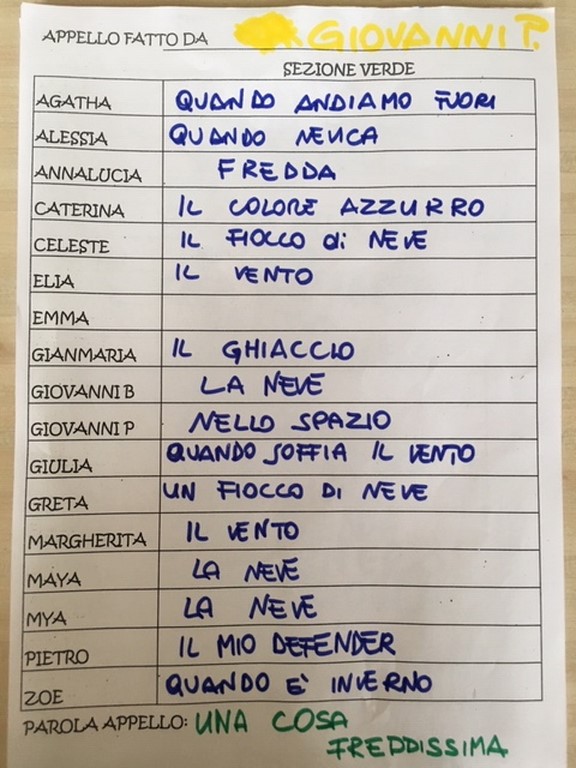 APPELLO FATTO DA GIOVANNI P.
SEZIONE VERDE
AGATHA QUANDO ANDIAMO FUORI
ALESSIA QUANDO NEVICA
ANNALUCIA FREDDA
CATERINA IL COLORE AZZURRO
CELESTE IL FIOCCO di NEVE
ELIA IL VENTO
EMMA
GIANMARIA IL GHIACCIO
GIOVANNI B LA NEVE
GIOVANNI P NELLO SPAZIO
GIULIA QUANDO SOFFIA IL VENTO
GRETA UN FIOCCO DI NEVE
MARGHERITA IL VENTO
MAYA LA NEVE
MYA LA NEVE
PIETRO IL MIO DEFENDER
ZOE QUANDO E' INVERNO
PAROLA APPELLO: UNA COSA
FREDDISSIMA